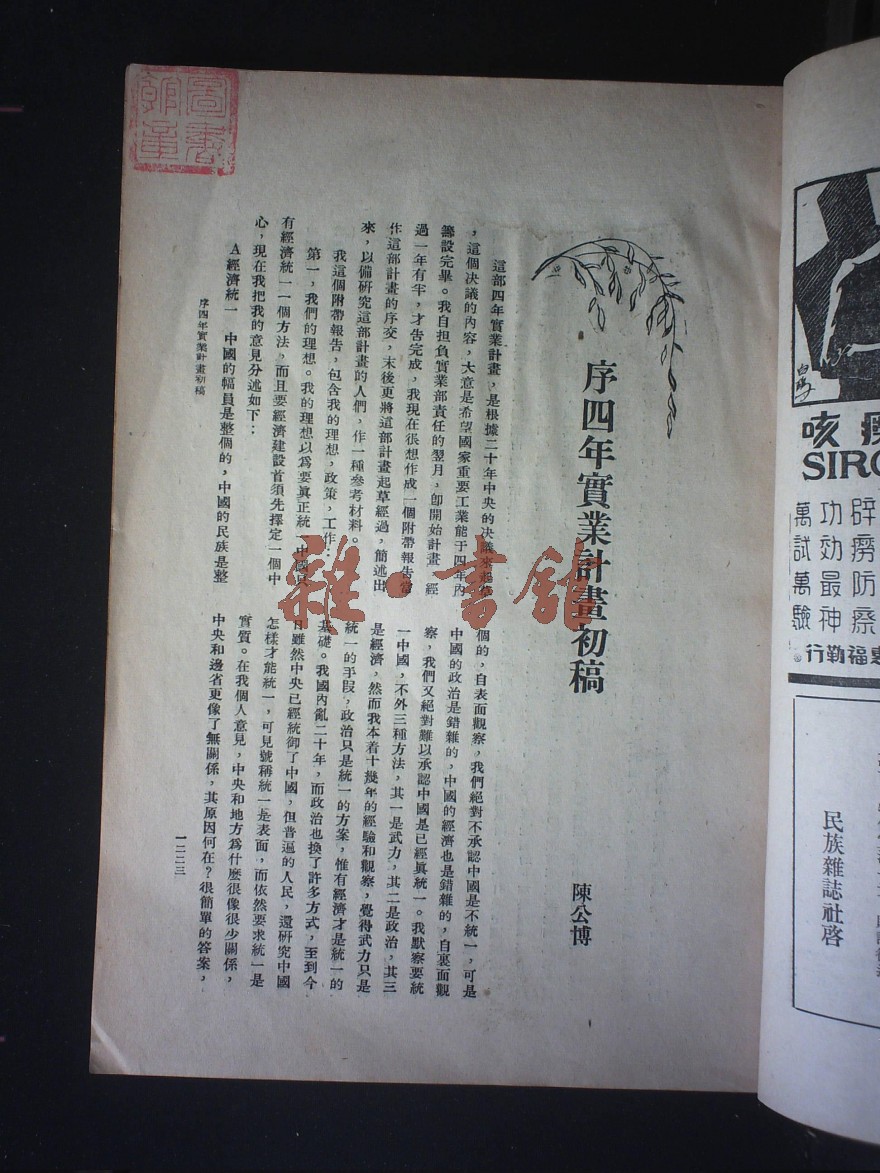 圖書
館章
序四年實業計畫初稿
陳公博
這部四年實業計畫,是根據二十年中央的決議來
,這個決議的內容,大意是希望國家重要工業能于四年內
籌設完畢。我自担負實業部責任的翌月,卽開始計畫,經
過一年有半,才告完成,我現在很想作成一個附帶報告當
作這部計畫的序文,末後更將這部計畫起草經過,簡述出
來,以備研究這部計畫的人們,作一種參考材料。
我這個附帶報告,包含我的理想,政策,工作:
第一,我們的理想。我的理想以爲要眞正統一中國只
有經濟統一一個方法,而且要經濟建設首須先擇定一個中
心,現在我把我的意見分述如下:
A經濟統一 中國的幅員是整個的,中國的民族是整
個的,自表面觀察,我們絕對不承認中國是不統一,可是
中國的政治是錯雜的,中國的經濟也是錯雜的,自裏面觀
察,我們又絕對難以承認中國是已經眞統一。我默察要統
一中國,不外三種方法,其一是武力,其二是政治,其三
是經濟,然而我本着十幾年的經驗和觀察,覺得武力只是
統一的手段,政治只是統一的方案,惟有經濟才是統一的
基礎。我國內亂二十年,而政治也換了許多方式,至到今
日雖然中央已經統御了中國,但普遍的人民,還研究中國
怎樣才能統一,可見號稱統一是表面,而依然要求統一是
實質。在我個人意見,中央和地方爲什麽很像很少關係,
中央和邊省更像了無關係,其原因何在?很簡單的答案,
序四年實業計畫初稿
一二二三
雜·書館
咳
SIRO
辟癆防療
功効最神
萬試萬驗
惠福勒行
民族雜誌社啓